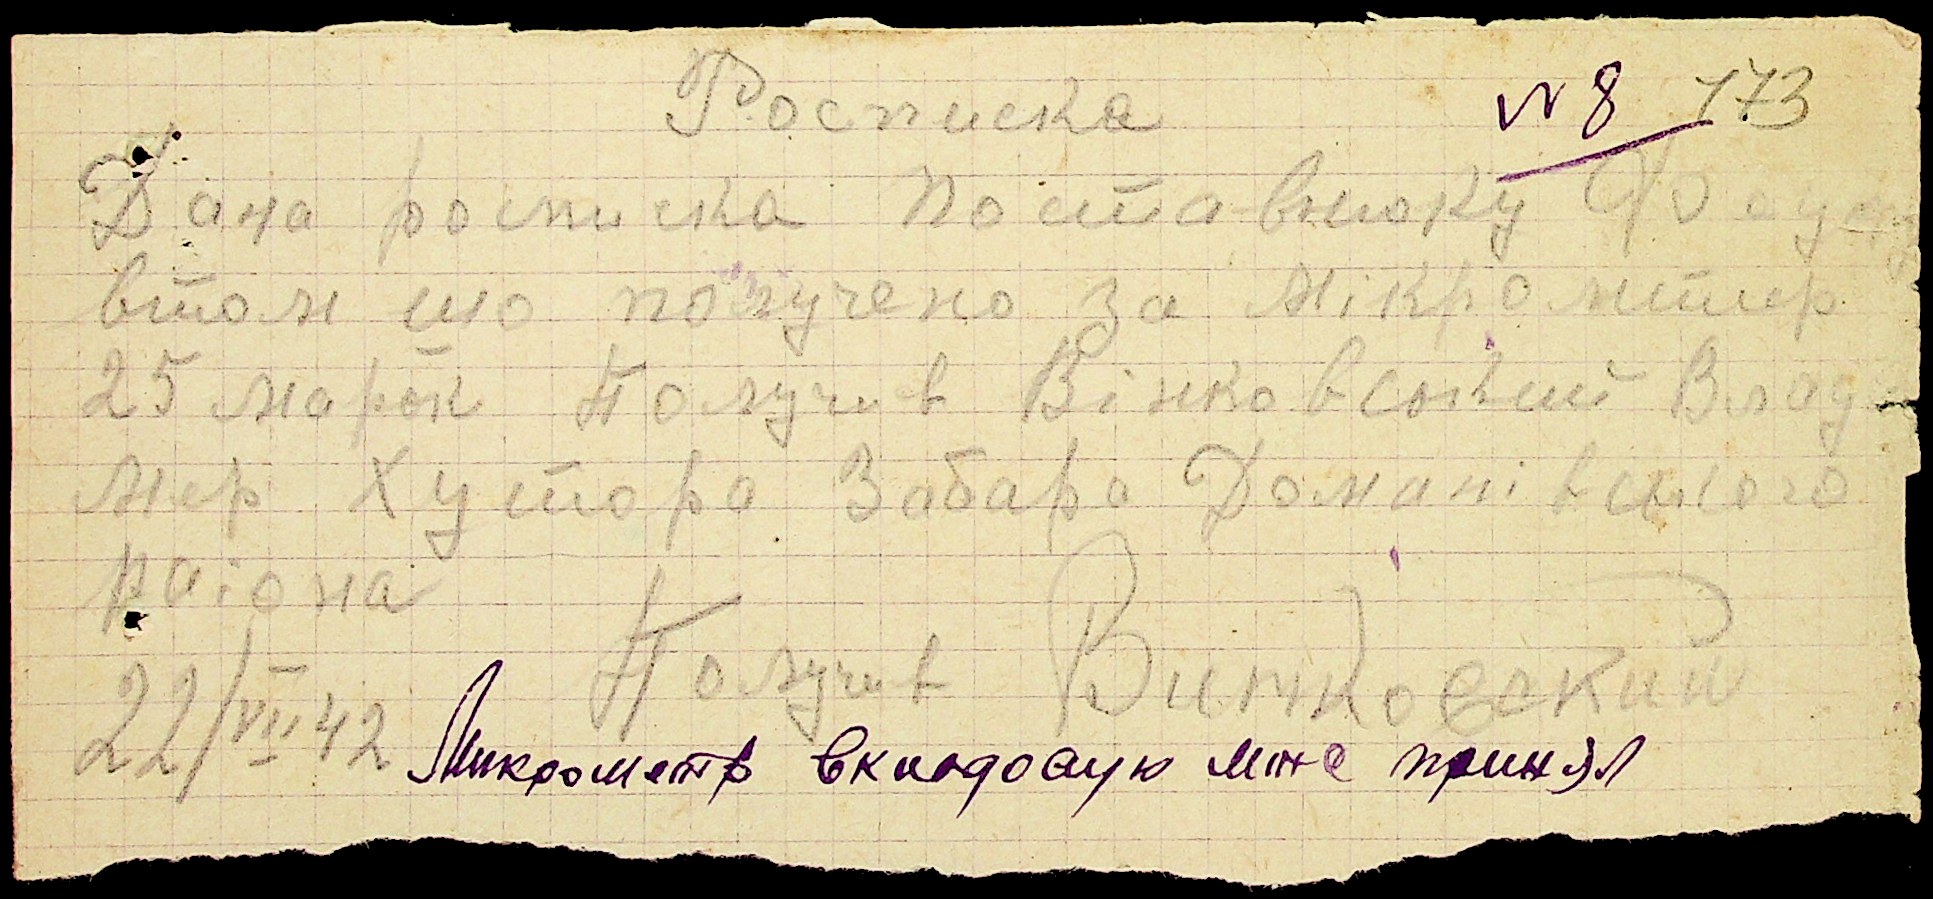 Росписка № 8 173
Дана росписка Поставнюку
втом що получено за мікрометер
25 марок Получив Вінковський Влад
мер Хутора Забара Доманівського
раіона
22/VIII 42 Получив Винковский
Микрометр вкладовую мне принял